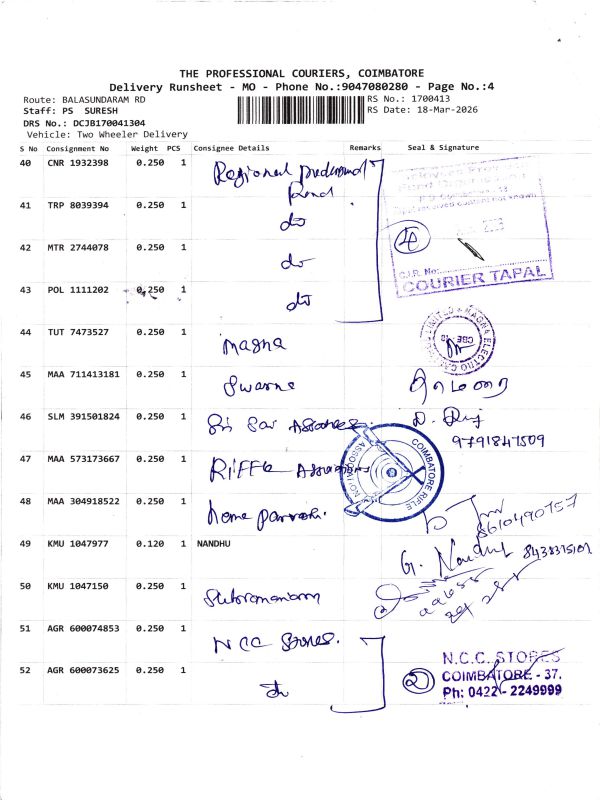 THE PROFESSIONAL COURIERS, COIMBATORE
Delivery Runsheet - MO - Phone No.:9047080280 - Page No.:4
Route: BALASUNDARAM RD
RS No.: 1700413
Staff: PS SURESH
RS Date: 18-Mar-2026
DRS No.: DCJB170041304
Vehicle: Two Wheeler Delivery
S No Consignment No Weight PCS Consignee Details Remarks Seal & Signature
40 CNR 1932398 0.250 1 Regional
Fund
41 TRP 8039394 0.250 1 do
42 MTR 2744078 0.250 1 do
43 POL 1111202 0.250 1 do
4
C.I.R. No:
COURIER TAPAL
44 TUT 7473527 0.250 1 Magna
45 MAA 711413181 0.250 1 Swarna தாமரை
46 SLM 391501824 0.250 1 Sri Sai Associates D.
9791847509
47 MAA 573173667 0.250 1 Riffle
COIMBATORE RIFLE
48 MAA 304918522 0.250 1 home
8610490757
49 KMU 1047977 0.120 1 NANDHU G. Nandhu
50 KMU 1047150 0.250 1 Subramaniam
51 AGR 600074853 0.250 1 NCC Stores.
52 AGR 600073625 0.250 1 do
2
N.C.C. STORES
COIMBATORE - 37.
Ph: 0422 - 2249999